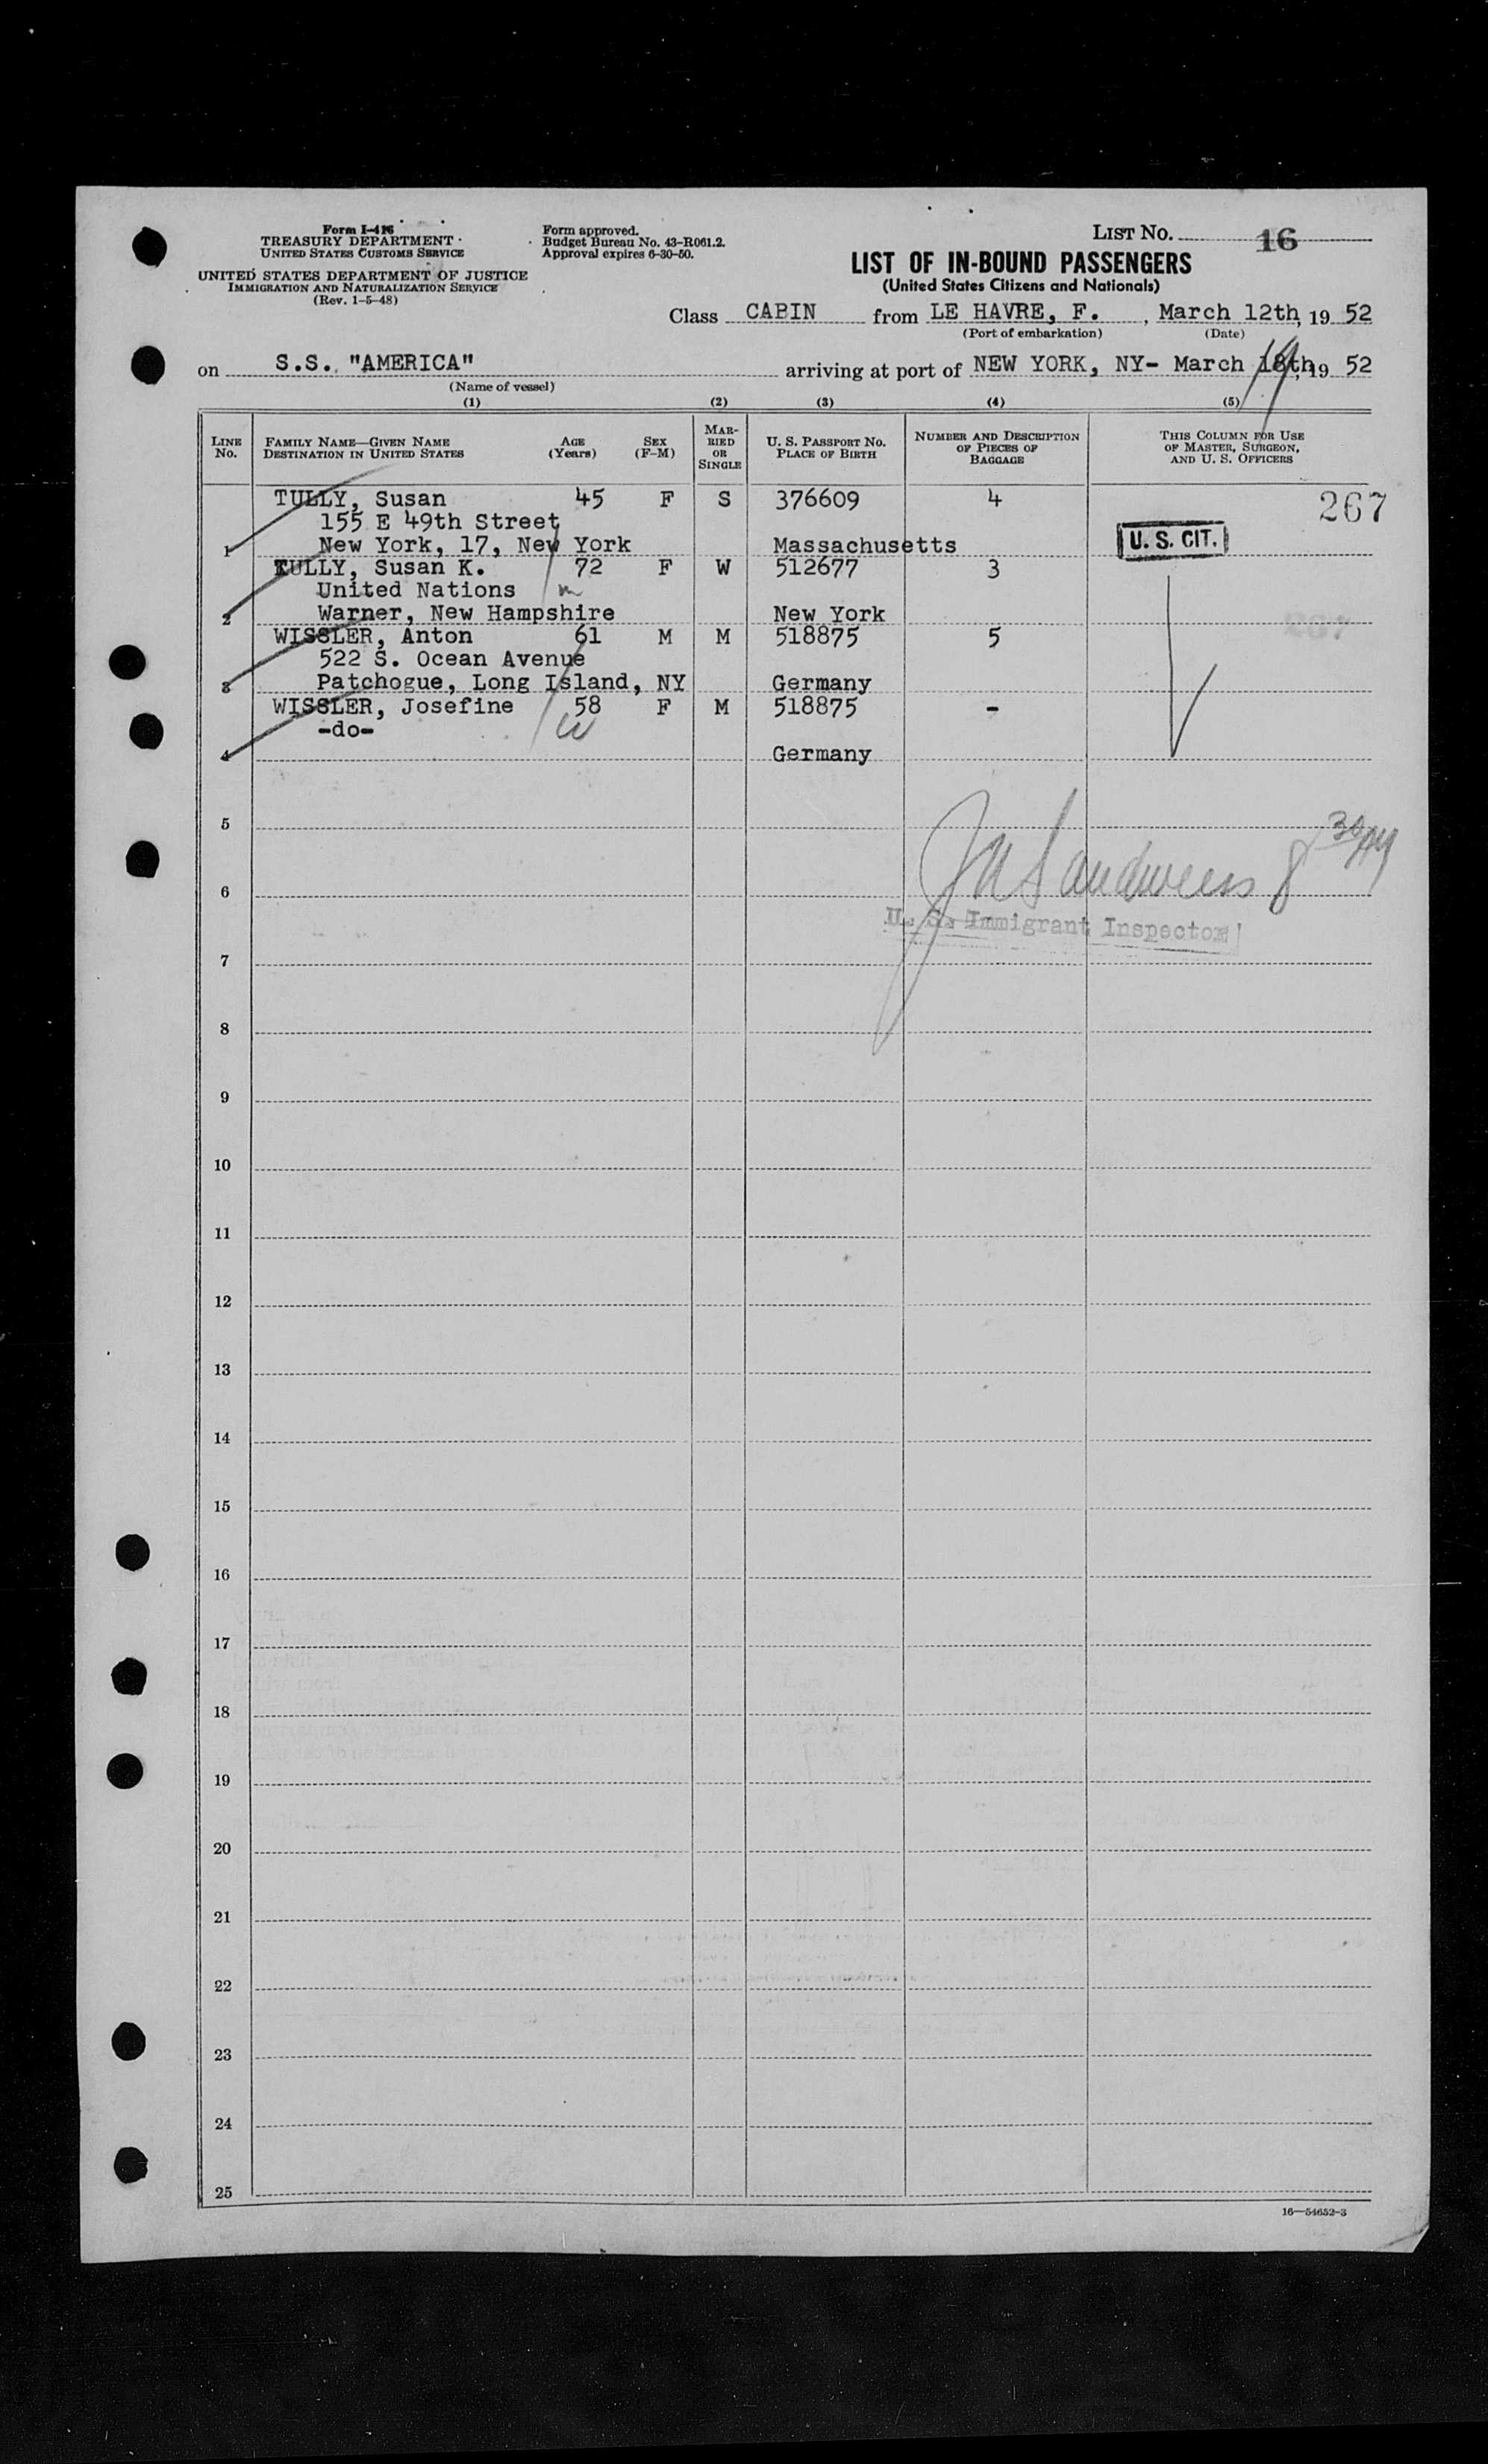 Form I-416
TREASURY DEPARTMENT
UNITED STATES CUSTOMS SERVICE
UNITED STATES DEPARTMENT OF JUSTICE
IMMIGRATION AND NATURALIZATION SERVICE
(Rev. 1-5-48)
Form approved.
Budget Bureau No. 43-R061.2.
Approval expires 6-30-50.
LIST NO. 16
LIST OF IN-BOUND PASSENGERS
(United States Citizens and Nationals)
Class CABIN from LE HAVRE, F. , March 12th, 19 52
(Port of embarkation) (Date)
on S.S. "AMERICA" arriving at port of NEW YORK, NY- March 18th, 19 52
19
(Name of vessel)
(1) (2) (3) (4) (5)
LINE No. FAMILY NAME—GIVEN NAME DESTINATION IN UNITED STATES AGE (Years) SEX (F-M) MARRIED OR SINGLE U. S. PASSPORT NO. PLACE OF BIRTH NUMBER AND DESCRIPTION OF PIECES OF BAGGAGE THIS COLUMN FOR USE OF MASTER, SURGEON, AND U. S. OFFICERS
TULLY, Susan 45 F S 376609 4 267
155 E 49th Street
1 New York, 17, New York Massachusetts U. S. CIT.
TULLY, Susan K. 72 F W 512677 3
United Nations
2 Warner, New Hampshire New York
WISSLER, Anton 61 M M 518875 5
522 S. Ocean Avenue
3 Patchogue, Long Island, NY Germany
WISSLER, Josefine 58 F M 518875 -
-do-
4 Germany
5
6
U. S. Immigrant Inspector
7
8
9
10
11
12
13
14
15
16
17
18
19
20
21
22
23
24
25
16—54652-3